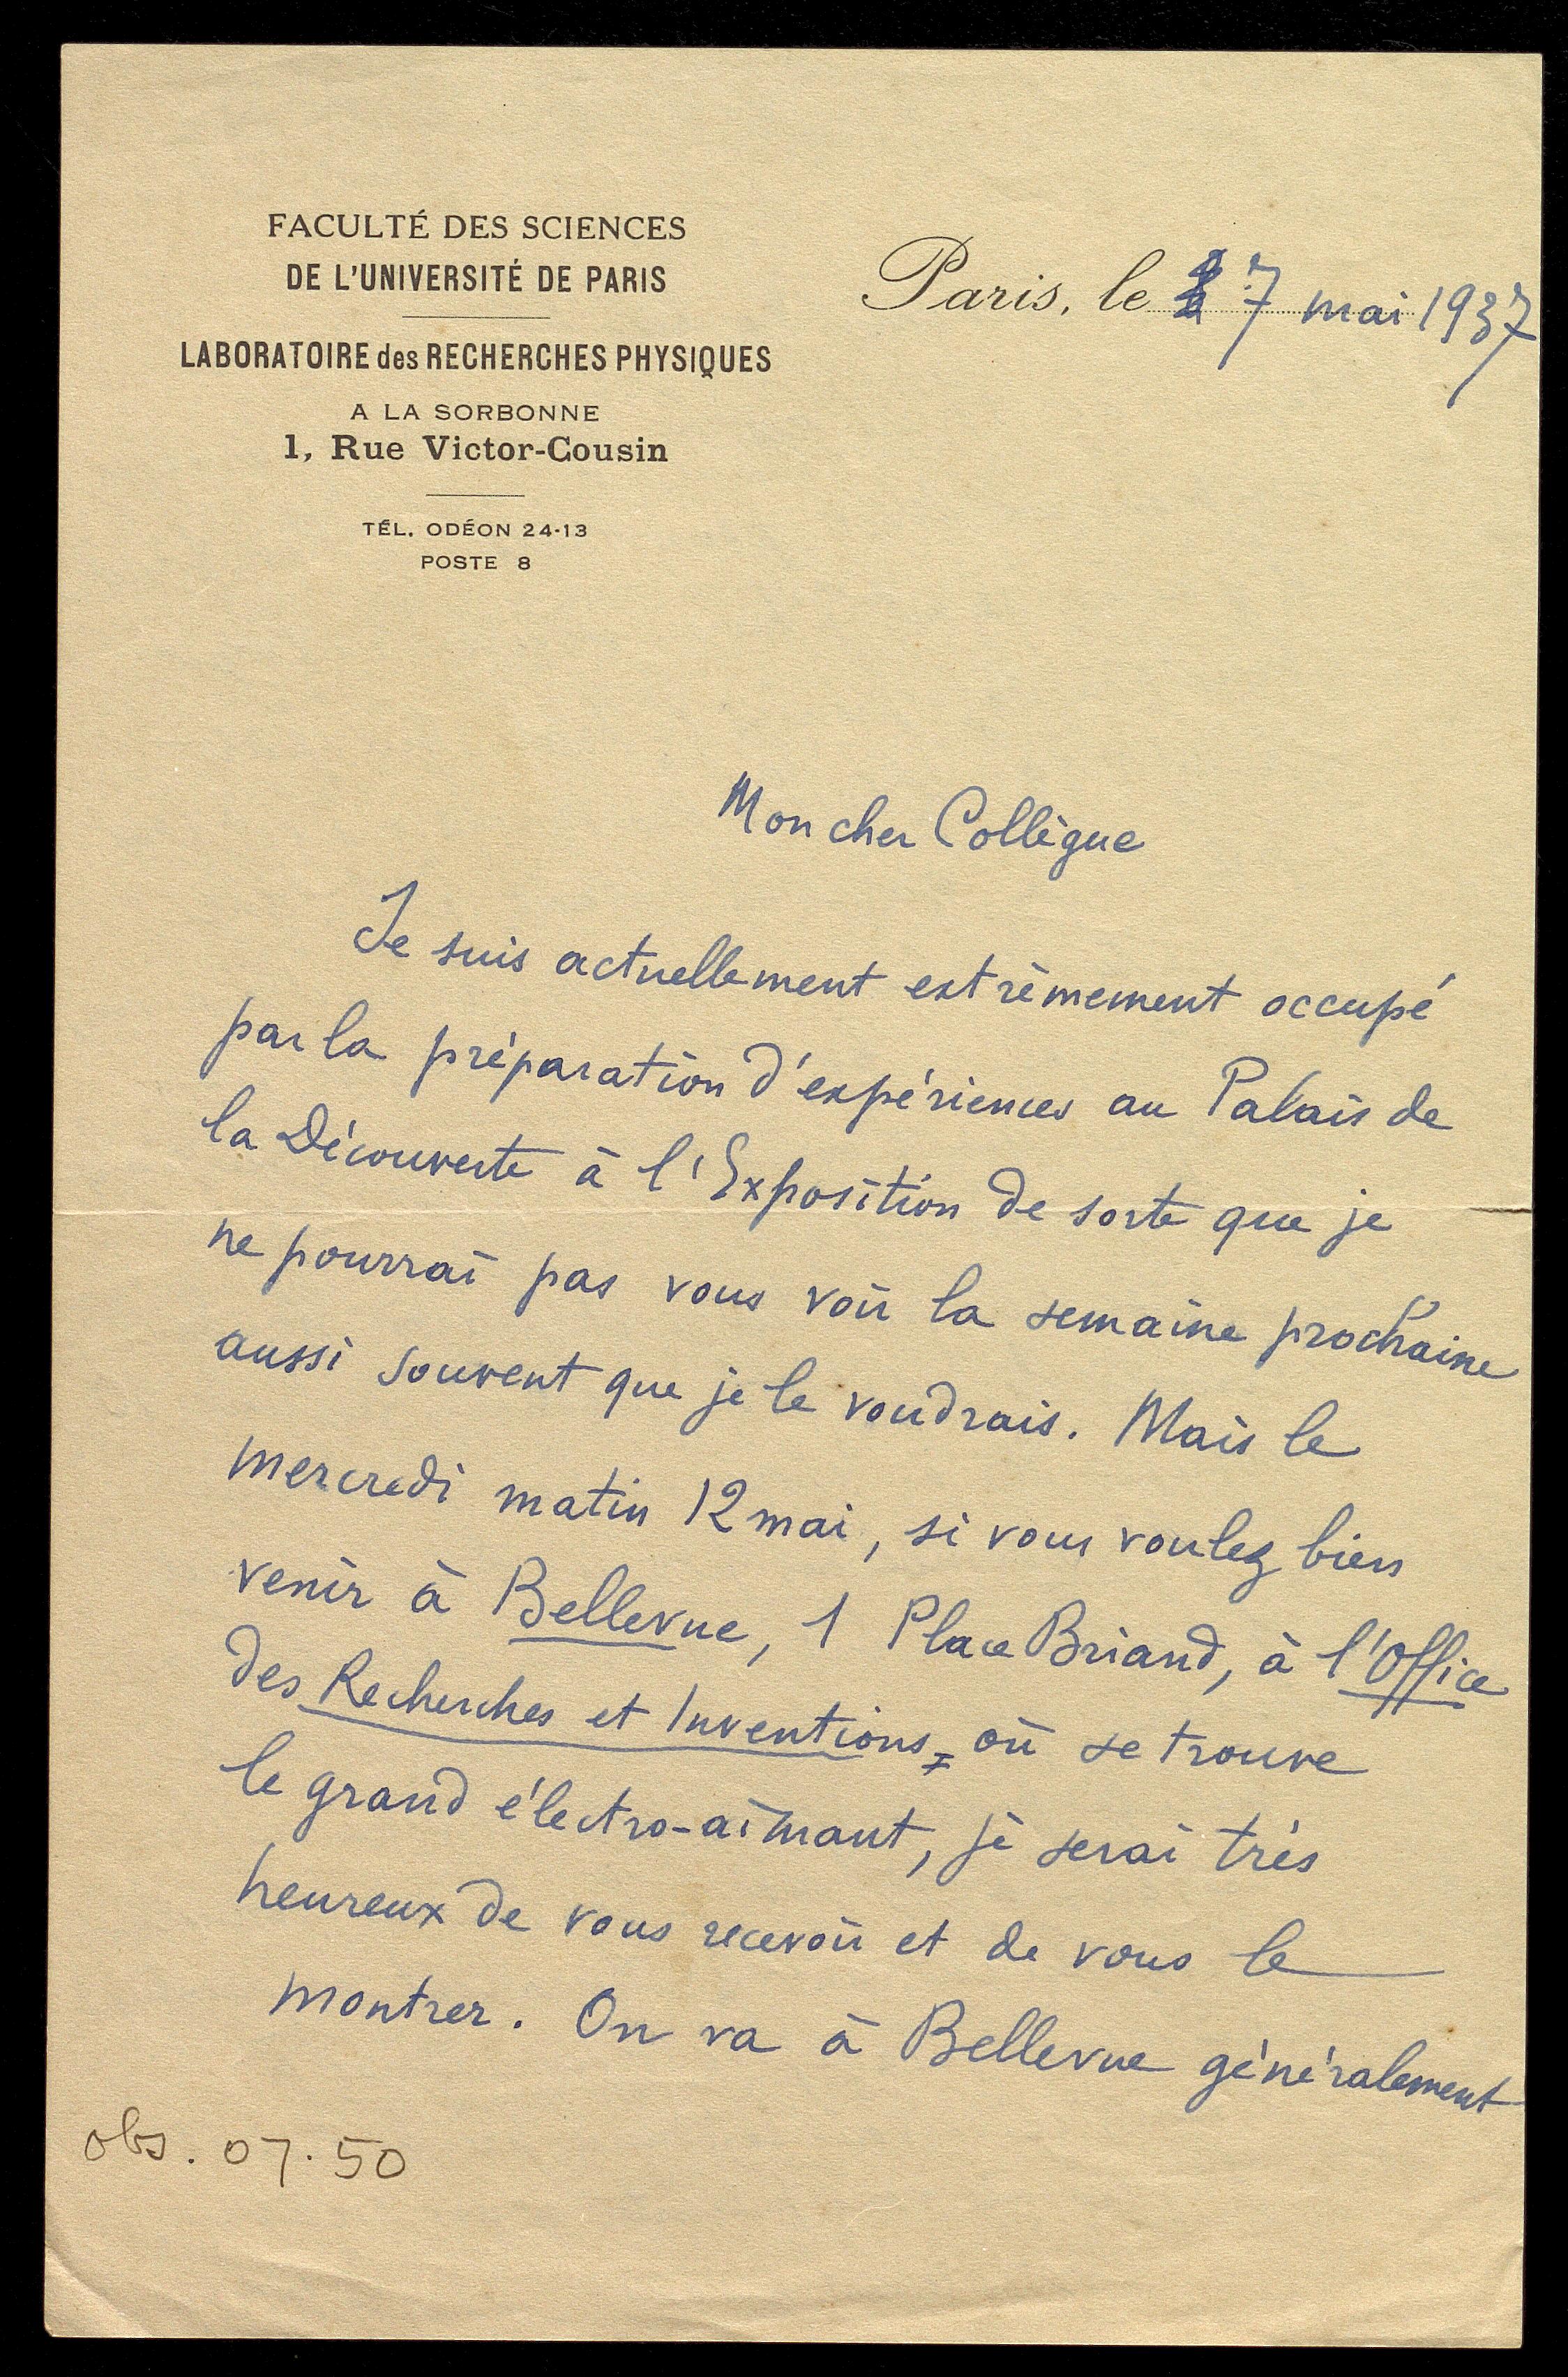 FACULTÉ DES SCIENCES
DE L'UNIVERSITÉ DE PARIS
LABORATOIRE des RECHERCHES PHYSIQUES
A LA SORBONNE
1, Rue Victor-Cousin
TÉL. ODÉON 24-13
POSTE 8
Paris, le 7 mai 1937
Mon cher Collègue
Je suis actuellement extrêmement occupé
par la préparation d'expériences au Palais de
la Découverte à l'Exposition de sorte que je
ne pourrai pas vous voir la semaine prochaine
aussi souvent que je le voudrais. Mais le
mercredi matin 12 mai, si vous voulez bien
venir à Bellevue, 1 Place Briand, à l'Office
des Recherches et Inventions, où se trouve
le grand électro-aimant, je serai très
heureux de vous recevoir et de vous le
montrer. On va à Bellevue généralement
obs. 07.50